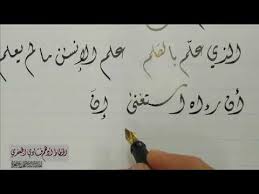 الذي علّم بالقلم علم الإنسٰن ما لم يعلم
أن رواه استغنىٰ إنّ